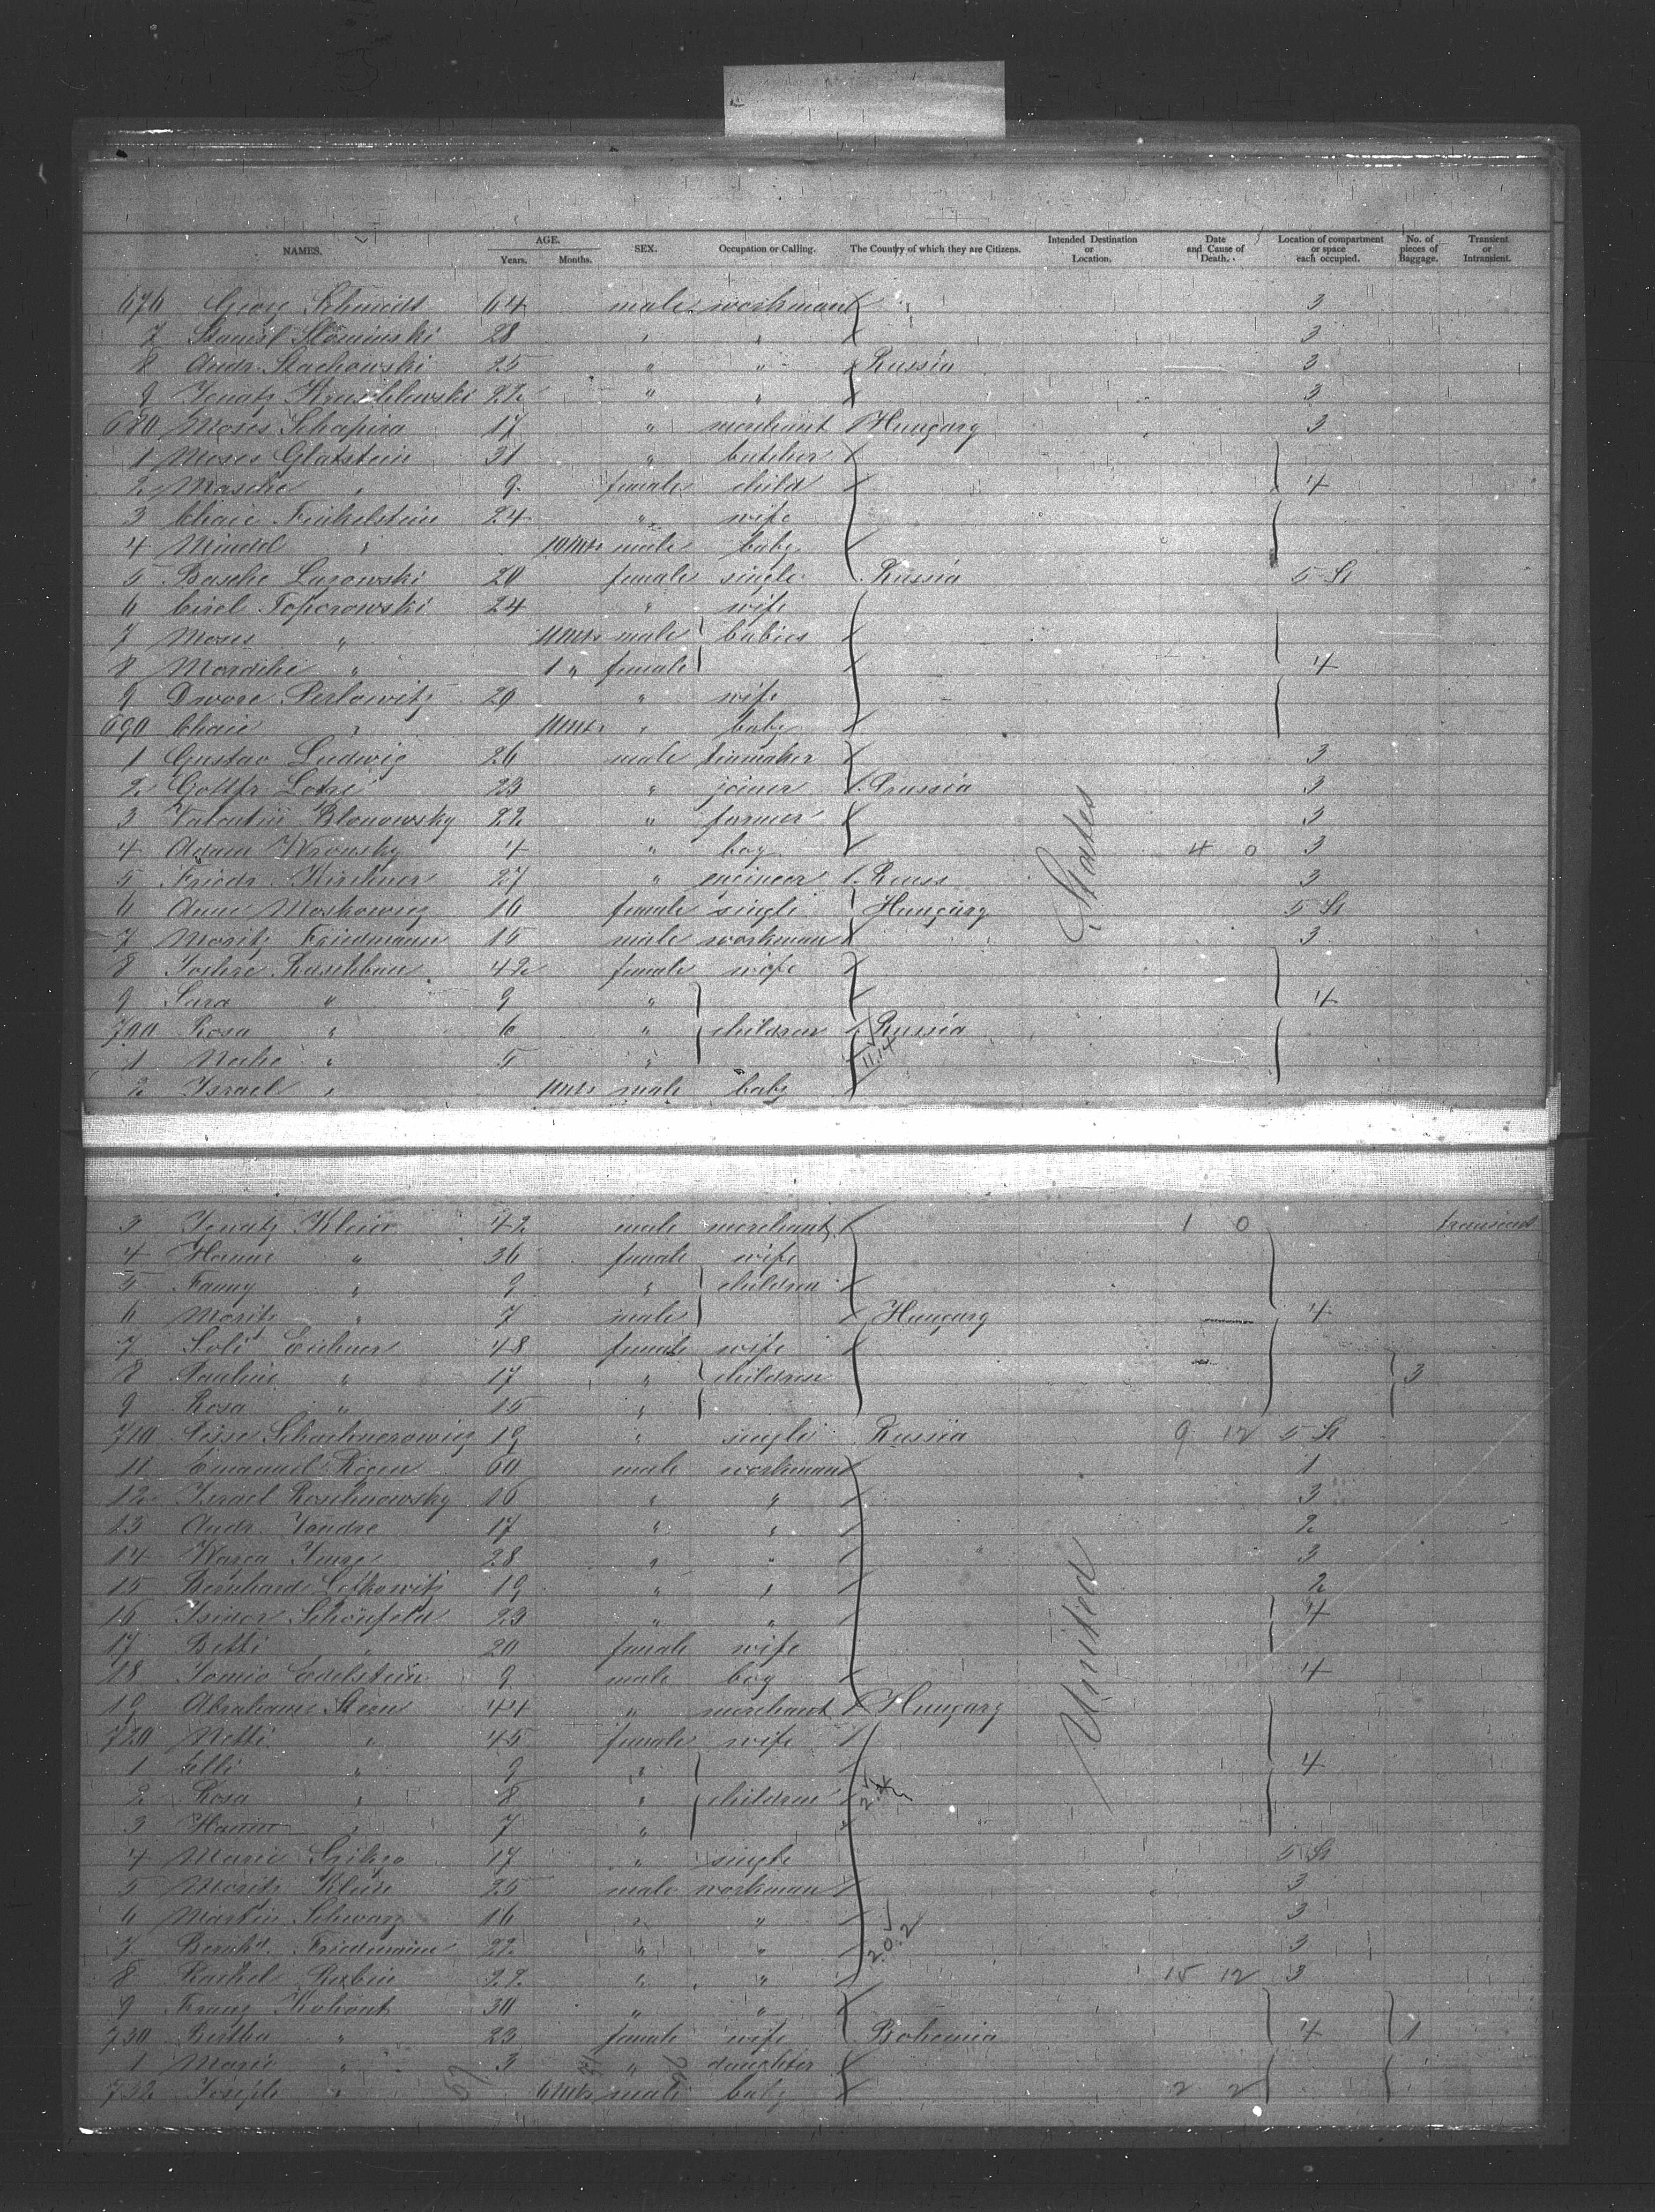 NAMES. AGE. Years. Months. SEX. Occupation or Calling. The Country of which they are Citizens. Intended Destination or Location. Date and Cause of Death. Location of compartment or space each occupied. No. of pieces of Baggage. Transient or Intransient.
676 Georg Schmidt 64 male workman 3
7 Stanisl Slominski 28 " " 3
8 Andr. Stachowski 25 " " Russia 3
9 Ignatz 22 " " 3
680 Moses Schapira 17 " merchant Hungary 3
1 Moses Glatstein 31 " butcher
2 Masche " 9 female child 4
3 Chaie Finkelstein 24 " wife
4 Mindel " 10 mts male baby
5 Basche Lazowski 20 female single Russia 5 St
6 Cirel Topcrowski 24 " wife
7 Moses " 11 mts male babies
8 Mordche " 1 " female 4
9 Dwore Perlowitz 29 " wife
690 Chaie " 11 mts " baby
1 Gustav Ludwig 26 male 3
2 Gottfr 23 " joiner Prussia 3
3 Valentin Blonowsky 22 " farmer 3
4 Adam Wronsky 4 " boy 4 0 3
5 Friedr. Kirchner 27 " engineer Reuss 3
6 Anne Moskowicz 16 female single Hungary 5 St
7 Moritz Friedmann 15 male workman 3
8 42 female wife
9 Sara " 9 " 4
700 Rosa " 6 " children Russia
1 Neche " 5 " 11.14
2 Israel " 11 mts male baby
3 Ignatz Klein 42 male merchant 1 0 transient
4 Hanne " 36 female wife
5 Fanny " 9 " children
6 Moritz " 7 male Hungary 4
7 Sali Eichner 48 female wife
8 Pauline " 17 " children 3
9 Rosa " 15 "
710 Schachnerowicz 19 " single Russia 9 12 5 St
11 Emanuel 60 male workman 1
12 Israel Roschnowsky 16 " " 3
13 Andr. 17 " " 2
14 28 " " 3
15 Bernhard Lefkowitz 19 " " 2
16 Isidor Schönfeld 23 " " 4
17 Betti " 20 female wife
18 Edelstein 9 male boy 4
19 Abraham Stern 44 " merchant Hungary
720 Netti " 45 female wife
1 Elli " 9 " 4
2 Rosa " 8 " children
3 Hanni " 7 "
4 Marie 17 " single 5 St
5 Moritz Klein 25 male workman 3
6 Martin Schwarz 16 " " 3
7 Bernhd. Friedmann 22 " " 20.2 3
8 Rachel Rubin 22 " " 15 12 3
9 Franz 30 " "
730 Bertha " 23 female wife Bohemia 4 1
1 Marie " 3 " daughter
732 Joseph " 6 mts male baby 2 2
United States